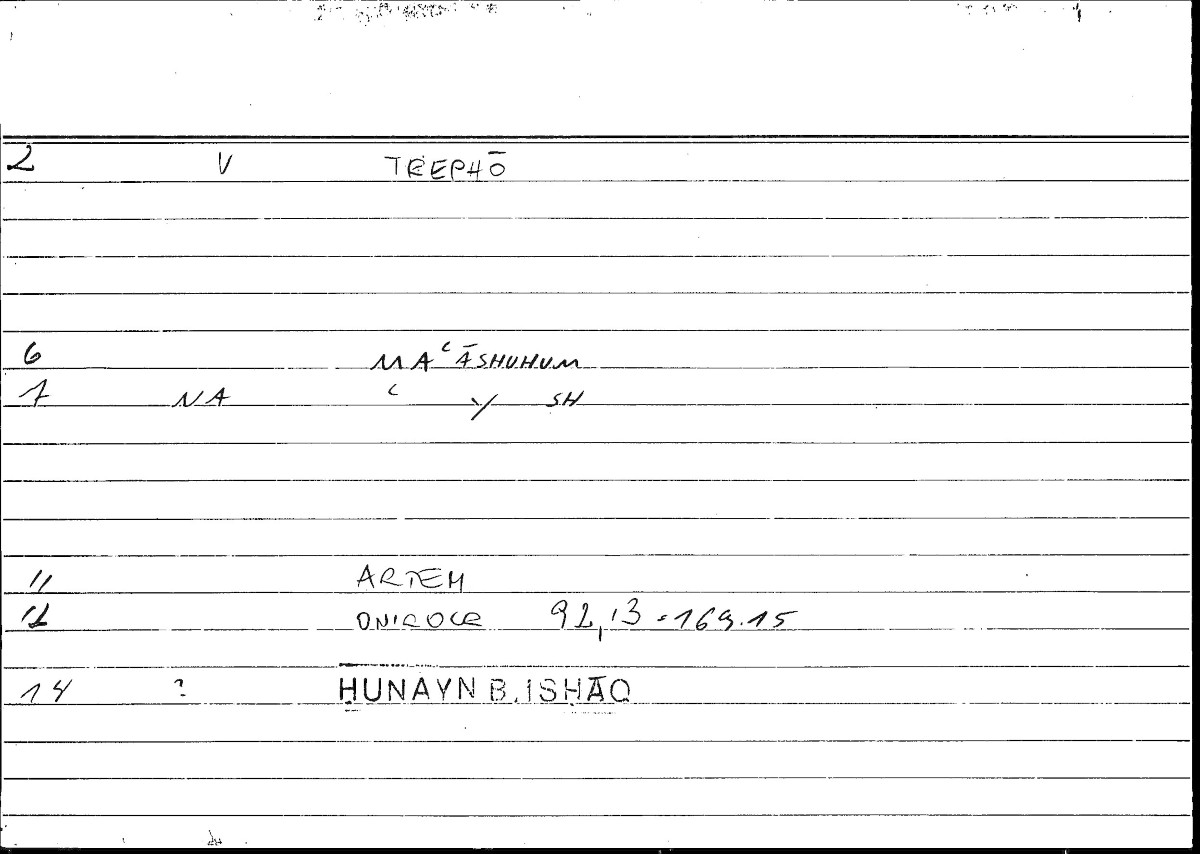 2 V TREPHŌ
6 MAʿĀSHUHUM
7 NA ʿ Y SH
11 ARTEM
12 ONIROCR 92,13 = 169.15
14 ? ḤUNAYN B. ISḤĀQ